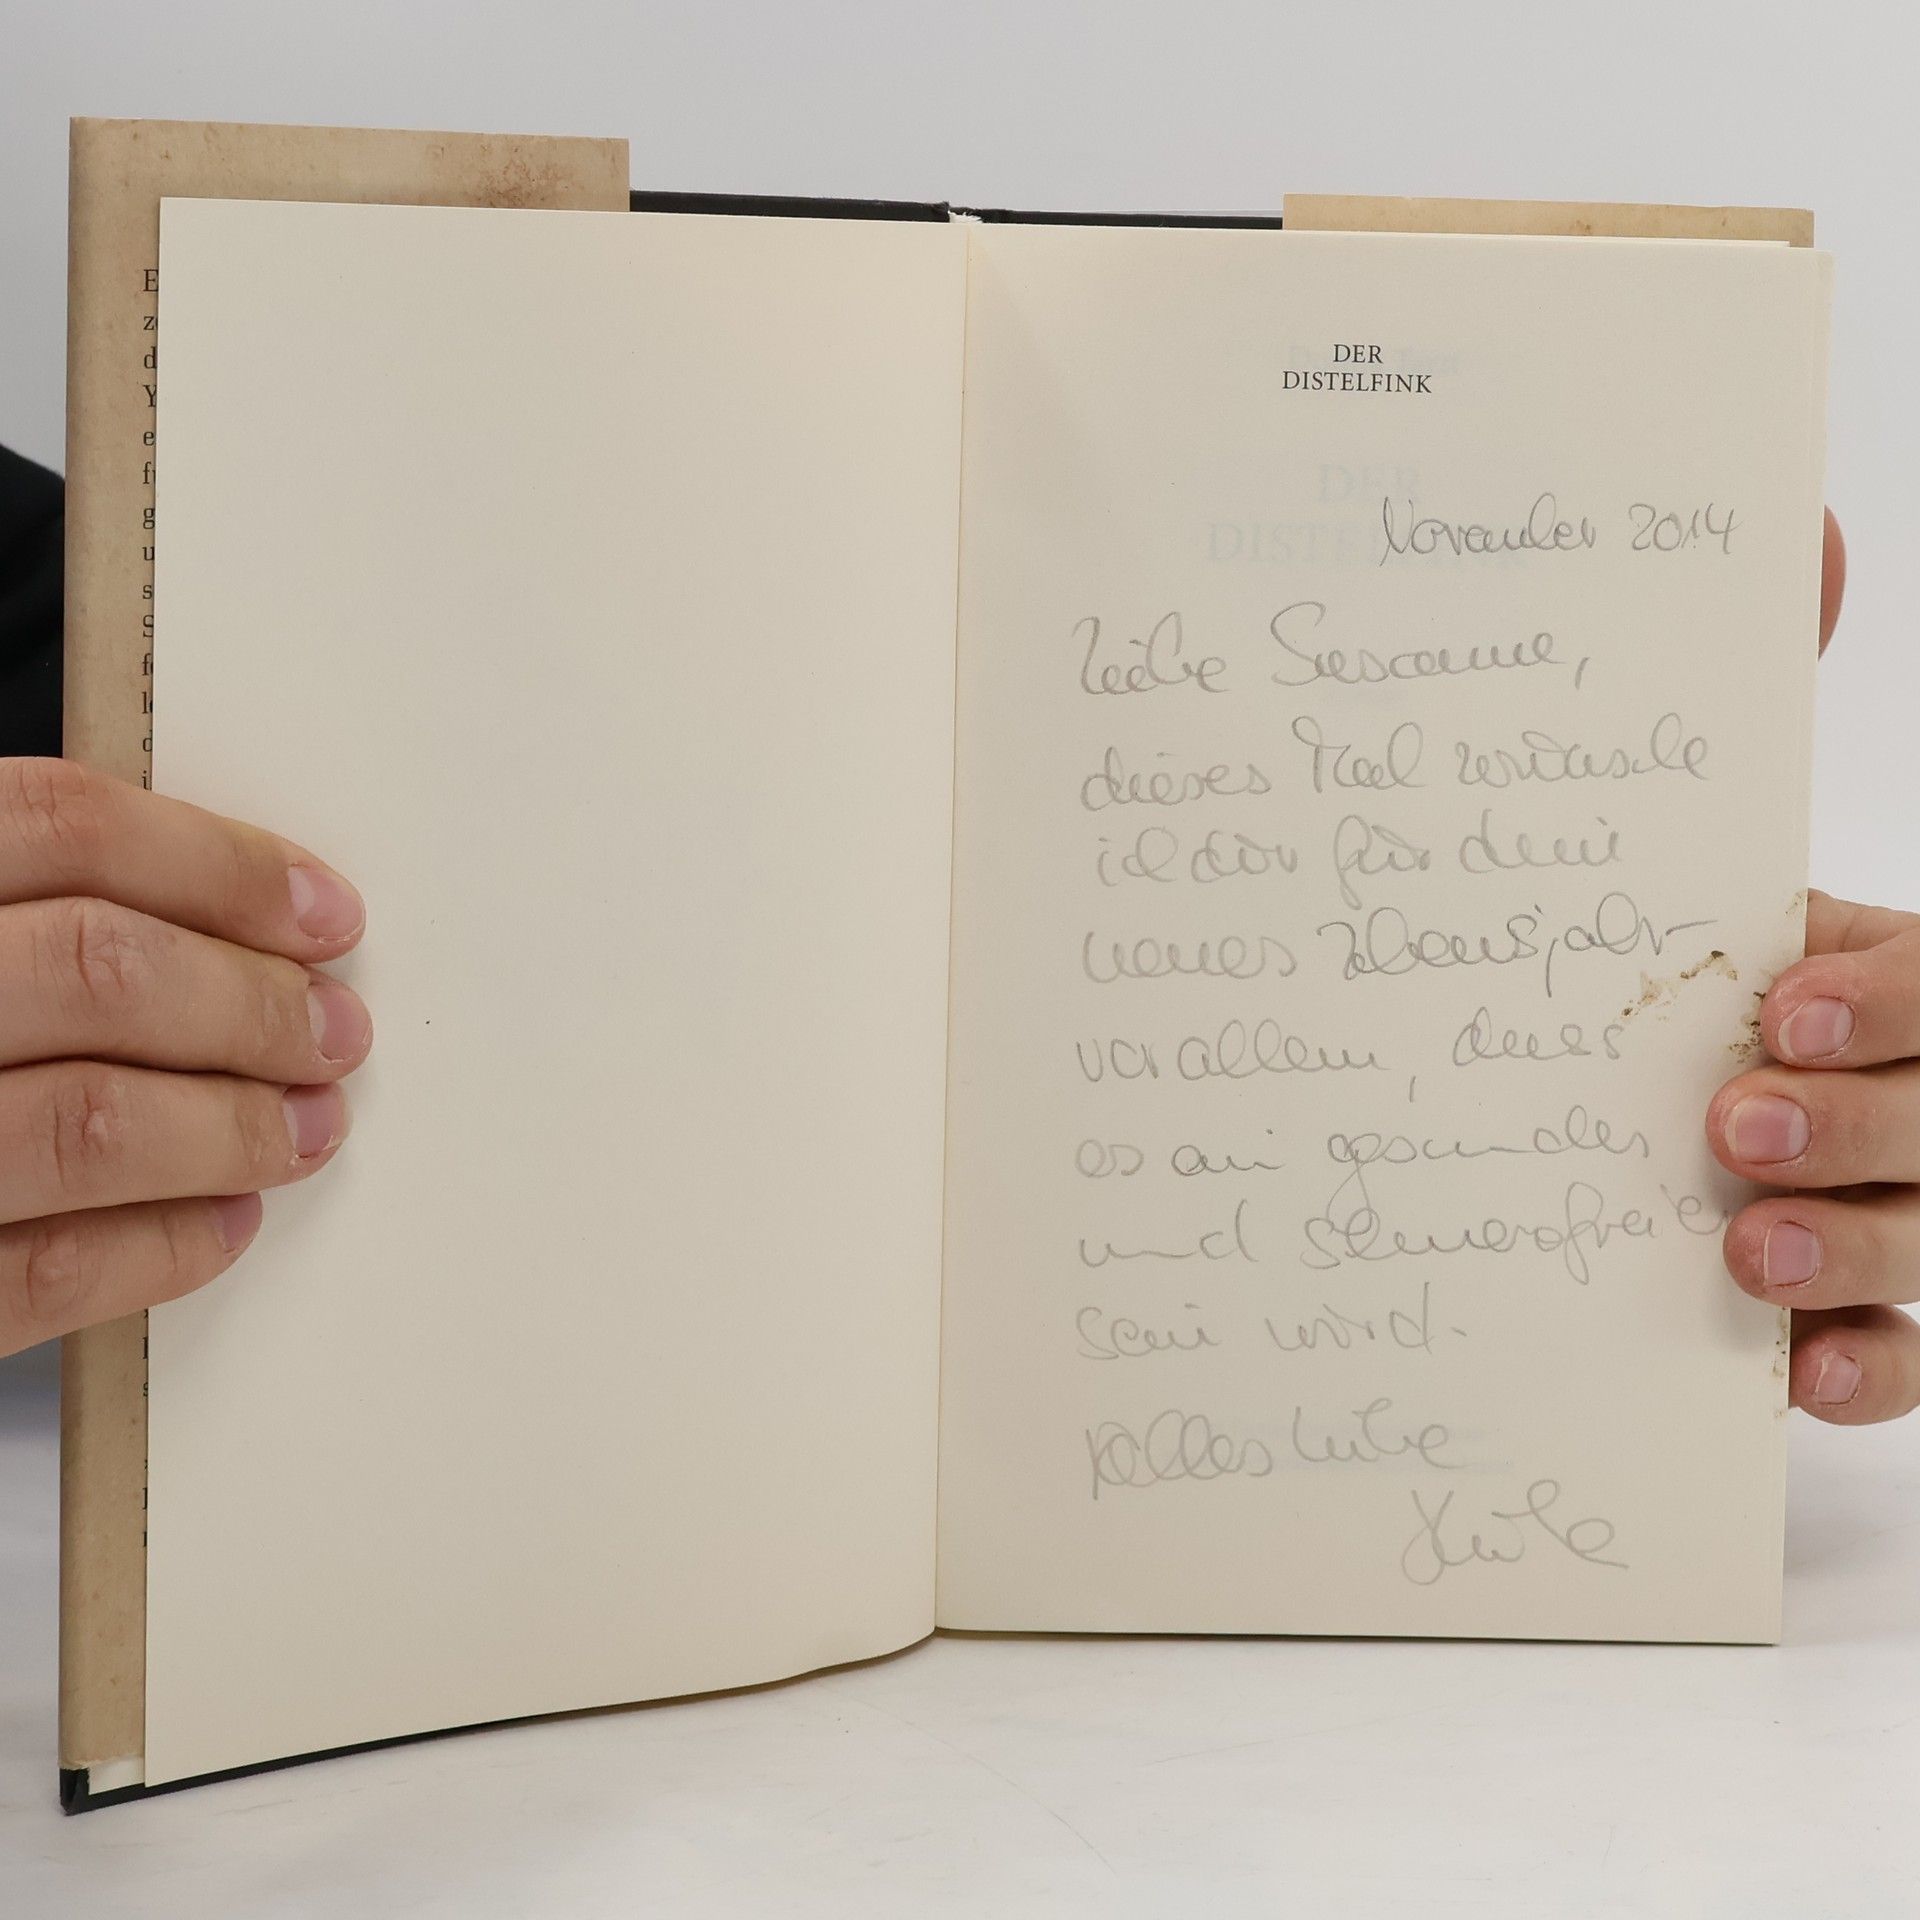 E
ze
d
Y
e
fü
g
u
s
S
fe
le
d
i
DER
DISTELFINK
November 2014
Liebe Susanne,
dieses Mal wünsche
ich dir für dein
neues Lebensjahr
vor allem, dass
es ein gesundes
und schmerzfreies
sein wird.
Alles Liebe